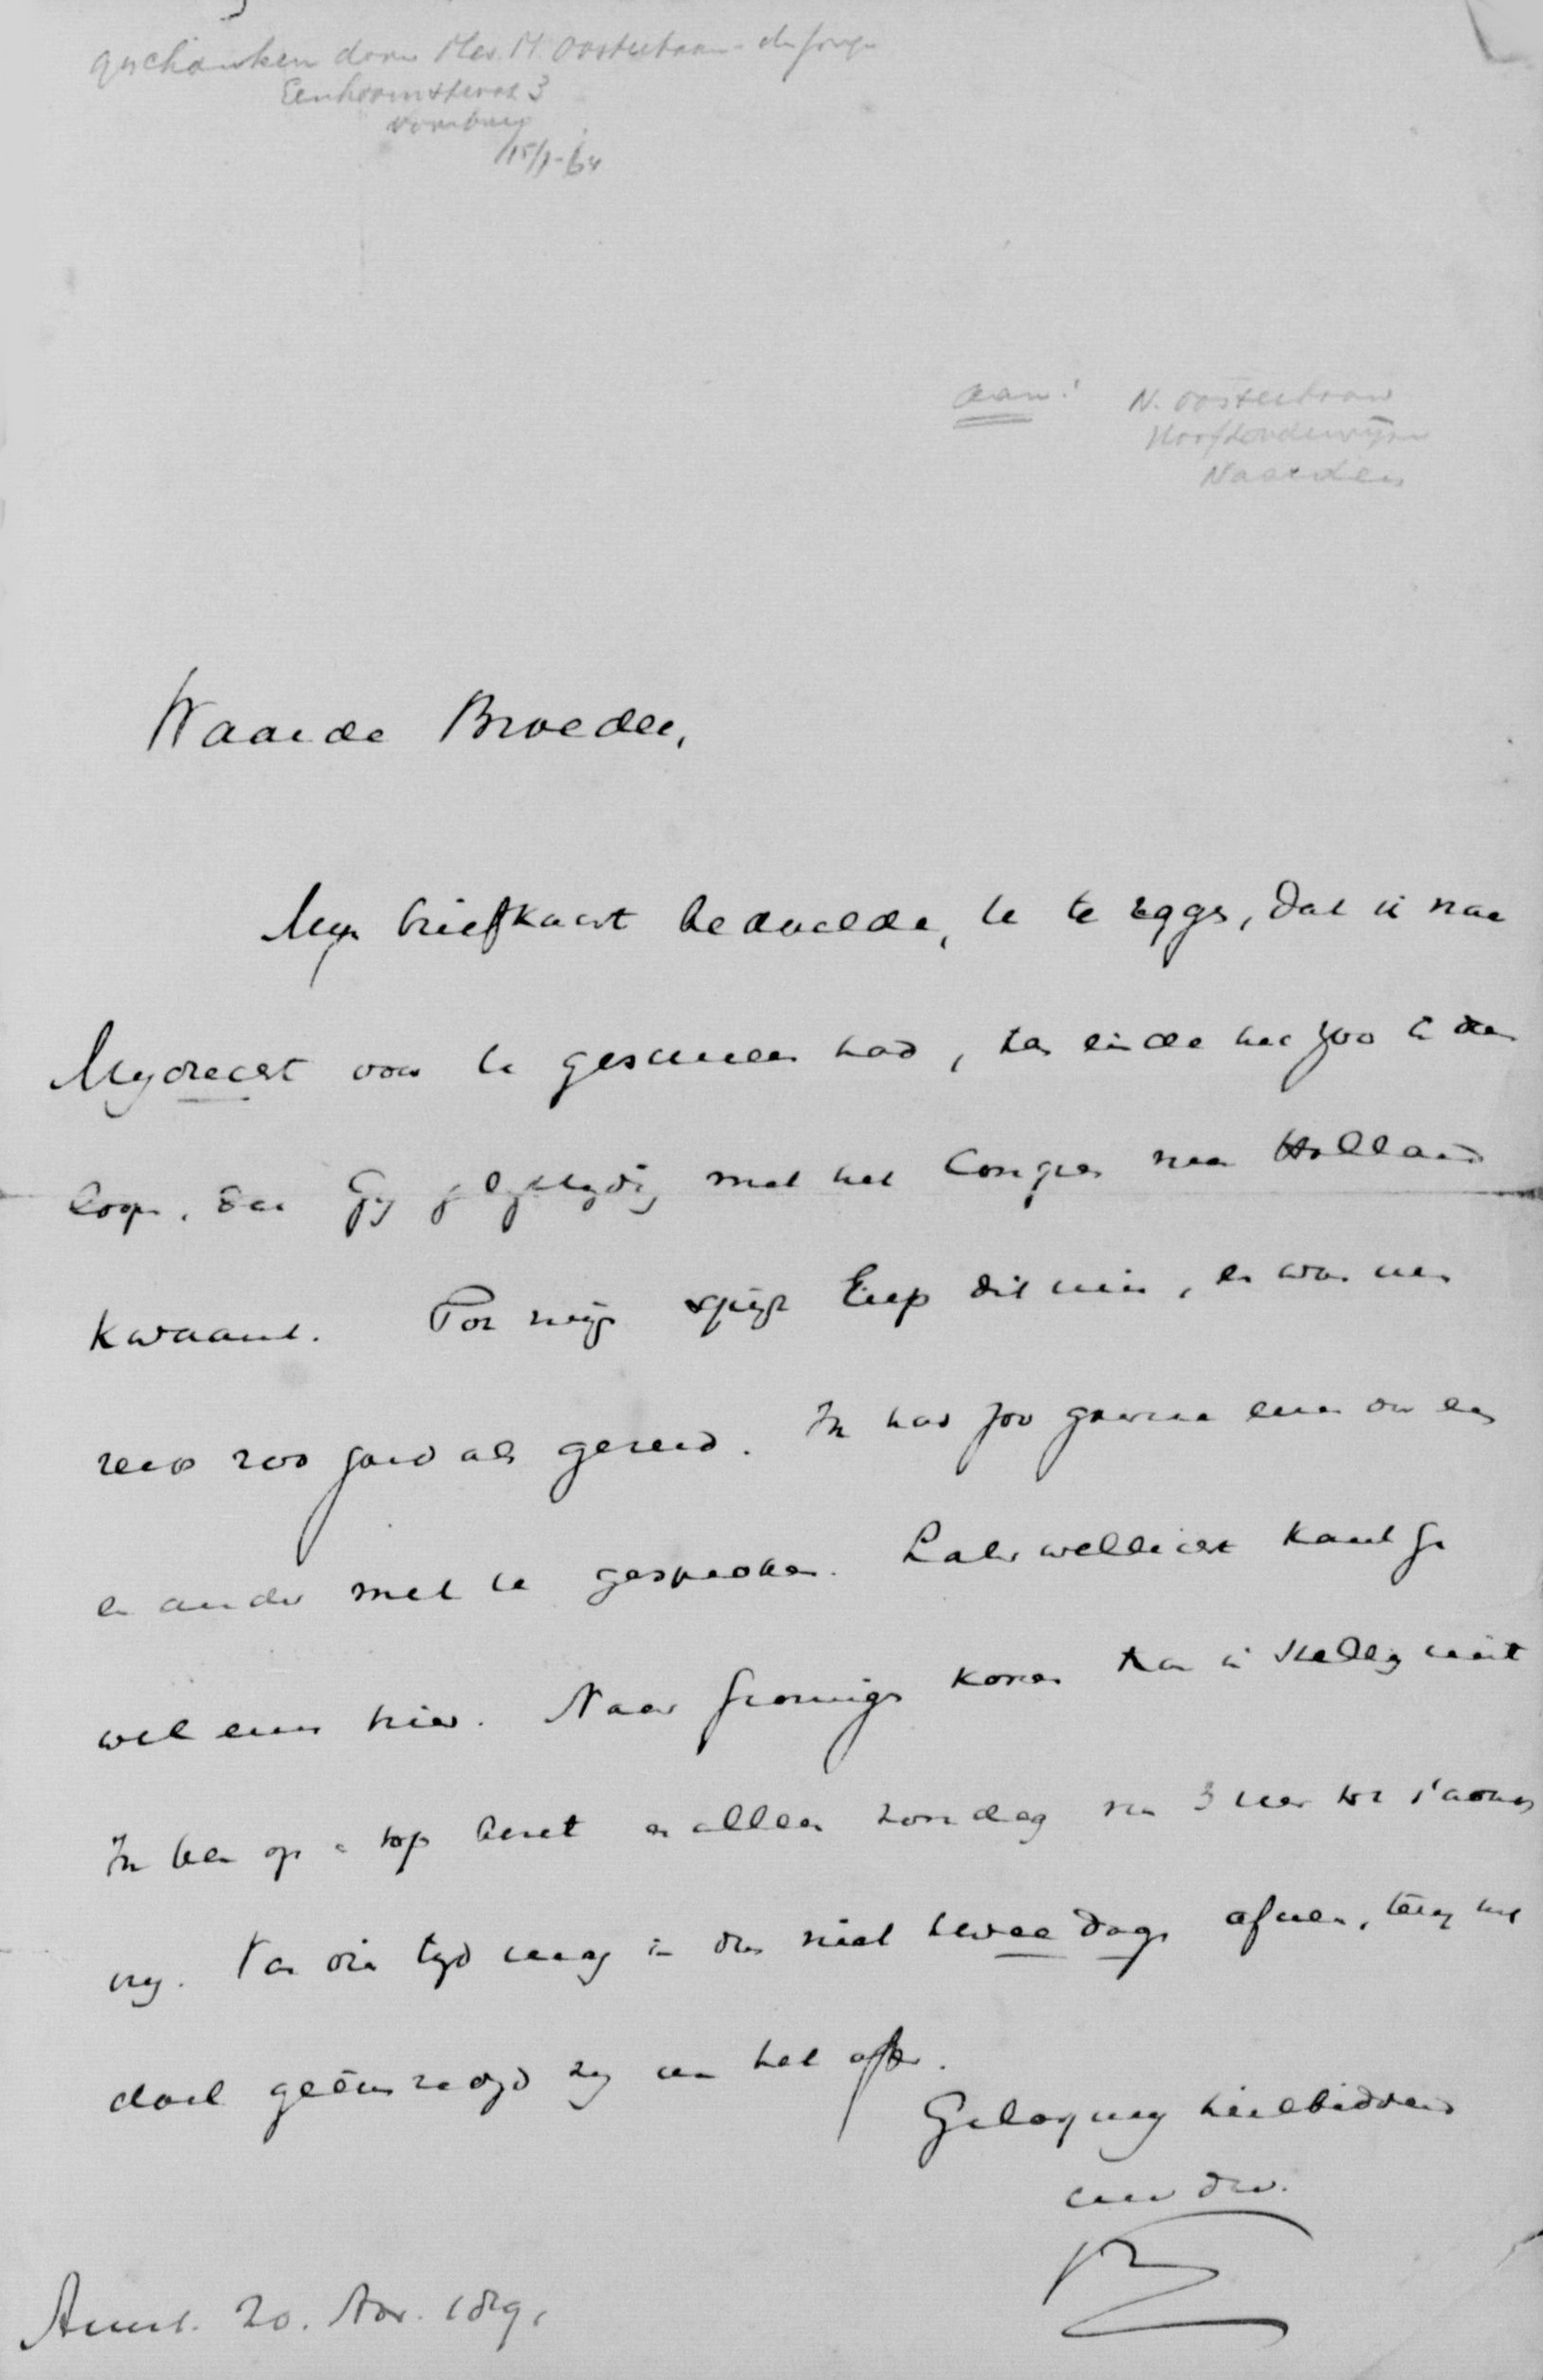 geschonken door Mevr. M. Oosterbaan - de Jonge
Eenhoornstraat 3
Voorburg
15/1-64
aan: N. Oosterbaan
Hoofdonderwijzer
Naarden
Waarde Broeder,
Mijn briefkaart bedoelde, te zeggen, dat ik naar
Mydrecht voor te had, ten einde het zoo te doen
loopen, dat Gij gelijktijdig met het Congres naar Holland
kwaamt. Tot mijn spijt liep dit mis, en was uw
reis zoo goed als gereed. Ik had zoo gaarne eens over een
en ander met U gesproken. Later wellicht kunt Ge
wel eens hier. Naar Groningen komen kan ik stellig niet
Ik ben op en top bezet en alleen Zondag na 3 uur tot 's avonds
vrij. Van dien tijd mag ik dus niet twee dagen afnemen, tenzij het
doel geëvenredigd zij aan het offer.
Geloof mij heilbiddend
uw dw.
K
Amst. 20. Nov. 1891